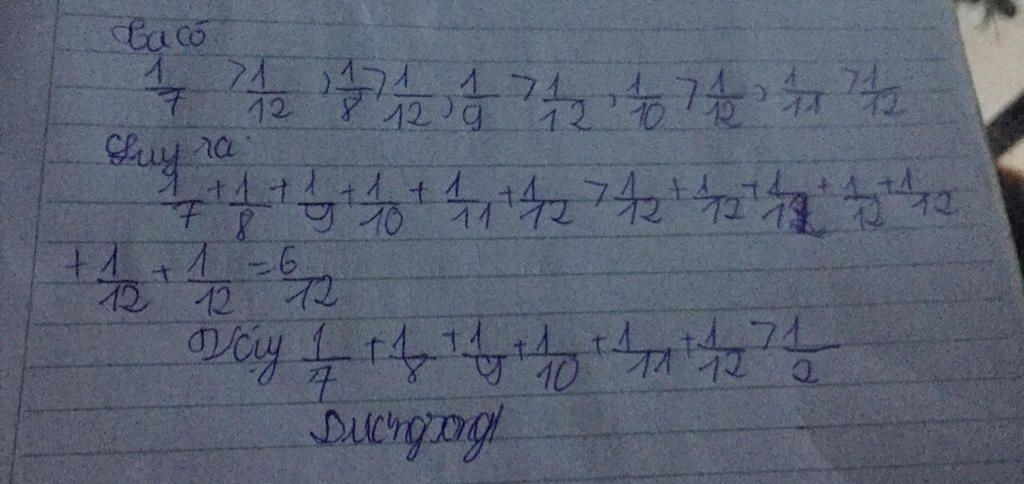 Ta có
1/7 > 1/12 , 1/8 > 1/12 , 1/9 > 1/12 , 1/10 > 1/12 , 1/11 > 1/12
Suy ra
1/7 + 1/8 + 1/9 + 1/10 + 1/11 + 1/12 > 1/12 + 1/12 + 1/12 + 1/12 + 1/12
+ 1/12 + 1/12 = 6/12
Vậy 1/7 + 1/8 + 1/9 + 1/10 + 1/11 + 1/12 > 1/2